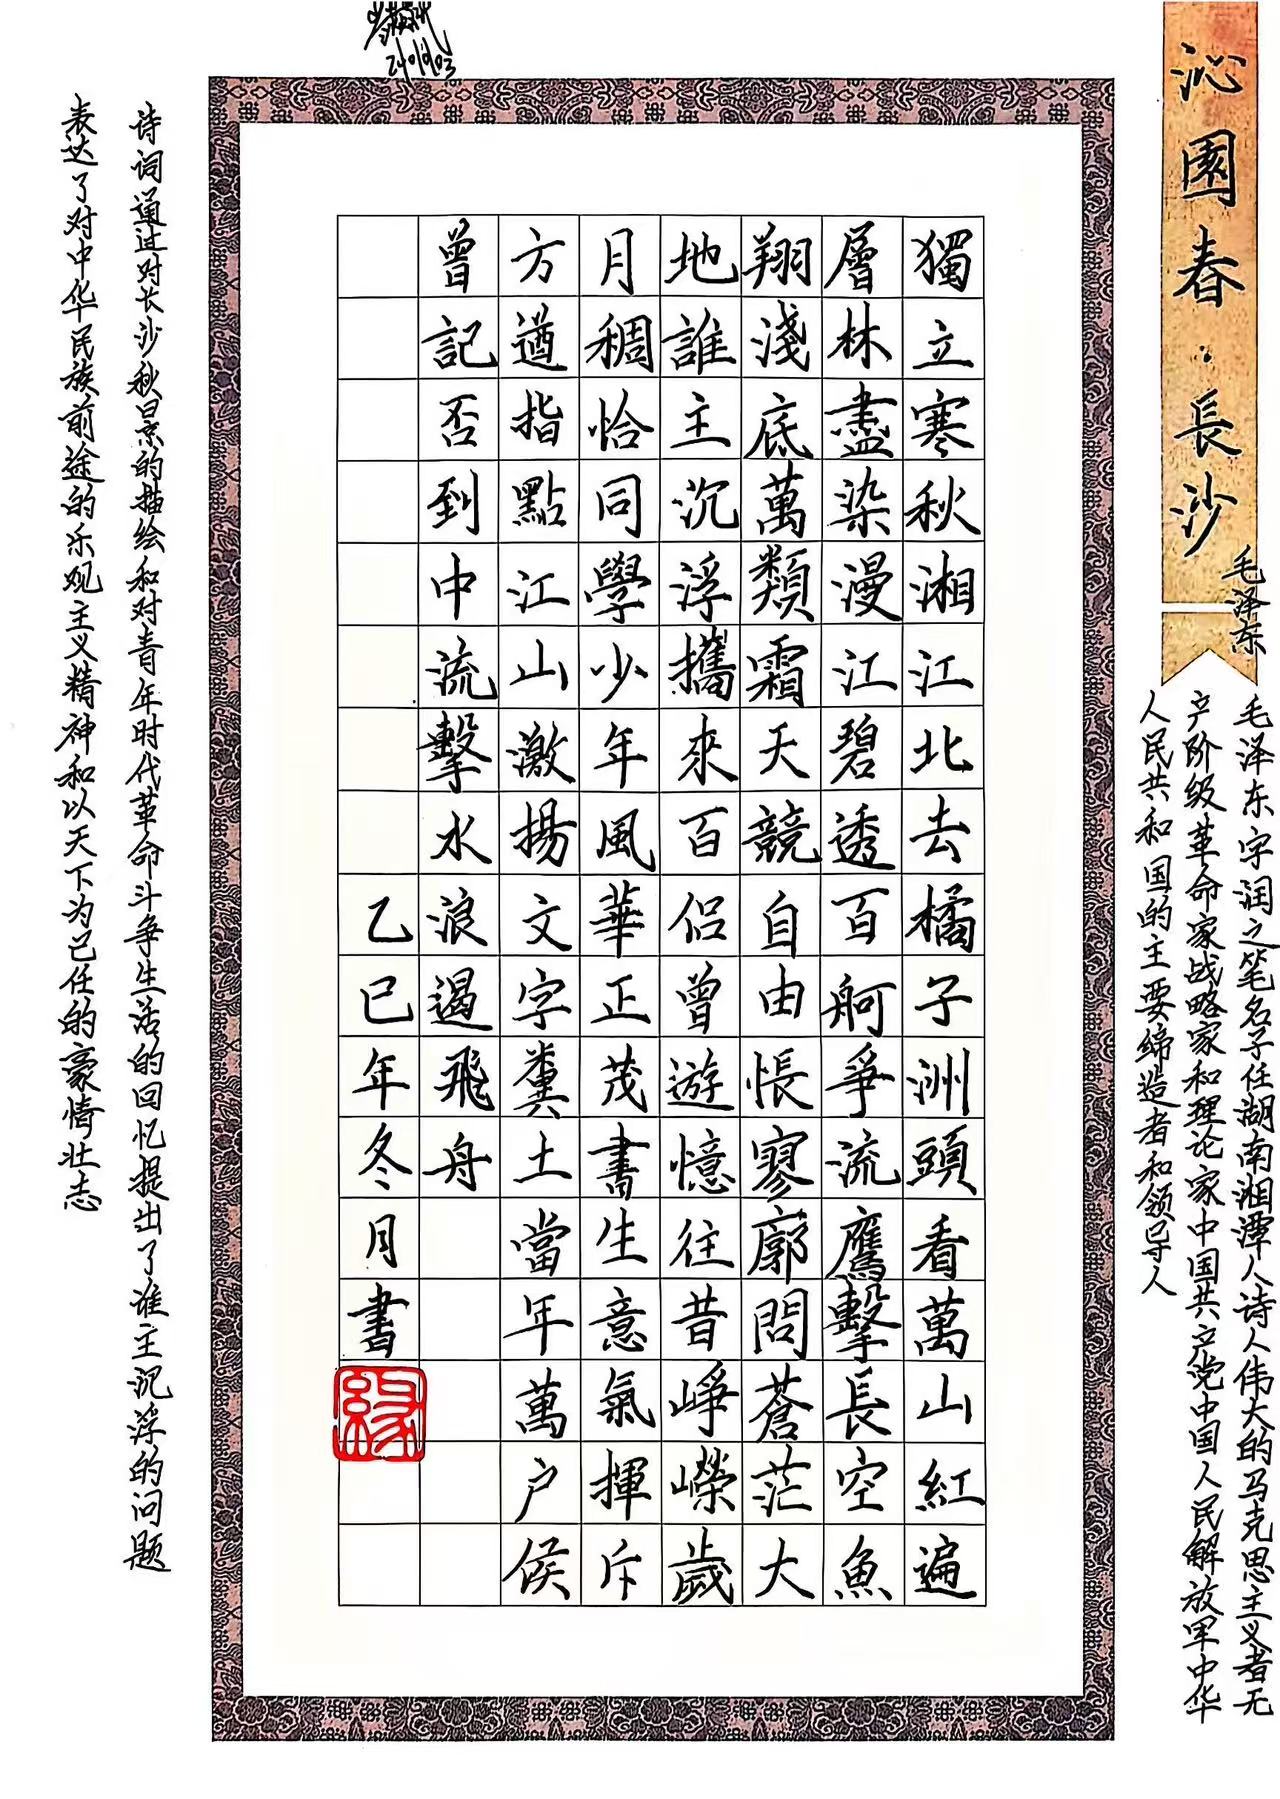 沁園春·長沙
毛泽东
毛泽东字润之笔名子任湖南湘潭人诗人伟大的马克思主义者无
产阶级革命家战略家和理论家中国共产党中国人民解放军中华
人民共和国的主要缔造者和领导人
獨立寒秋湘江北去橘子洲頭看萬山紅遍
層林盡染漫江碧透百舸爭流鷹擊長空魚
翔淺底萬類霜天競自由悵寥廓問蒼茫大
地誰主沉浮攜來百侣曾遊憶往昔崢嶸歲
月稠恰同學少年風華正茂書生意氣揮斥
方遒指點江山激揚文字糞土當年萬户侯
曾記否到中流擊水浪遏飛舟
乙巳年冬月書
缘
诗词通过对长沙秋景的描绘和对青年时代革命斗争生活的回忆提出了谁主沉浮的问题
表达了对中华民族前途的乐观主义精神和以天下为己任的豪情壮志